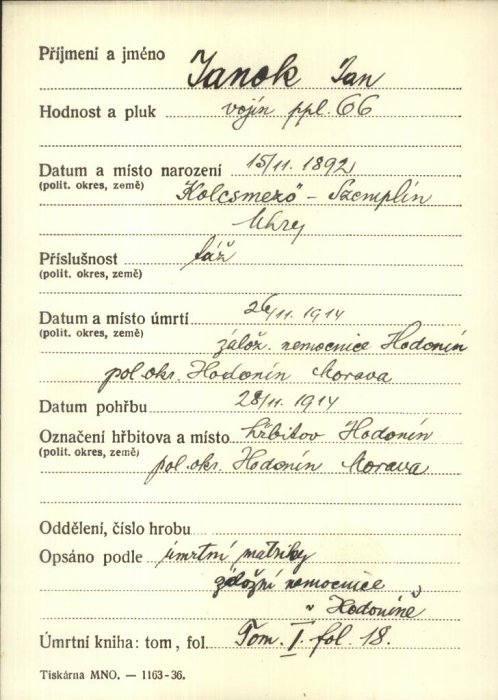 Příjmení a jméno Janok Jan
Hodnost a pluk vojín ppl. 66
Datum a místo narození 15/11. 1892
(polit. okres, země) Kolcsmező - Szemplín
Uhry
Příslušnost táž
(polit. okres, země)
Datum a místo úmrtí 26/11. 1914
(polit. okres, země) zálož. nemocnice Hodonín
pol. okr. Hodonín Morava
Datum pohřbu 28/11. 1914
Označení hřbitova a místo hřbitov Hodonín
(polit. okres, země) pol. okr. Hodonín Morava
Oddělení, číslo hrobu
Opsáno podle úmrtní matriky
záložní nemocnice
v Hodoníně
Úmrtní kniha: tom, fol. Tom. I. fol. 18.
Tiskárna MNO. — 1163-36.